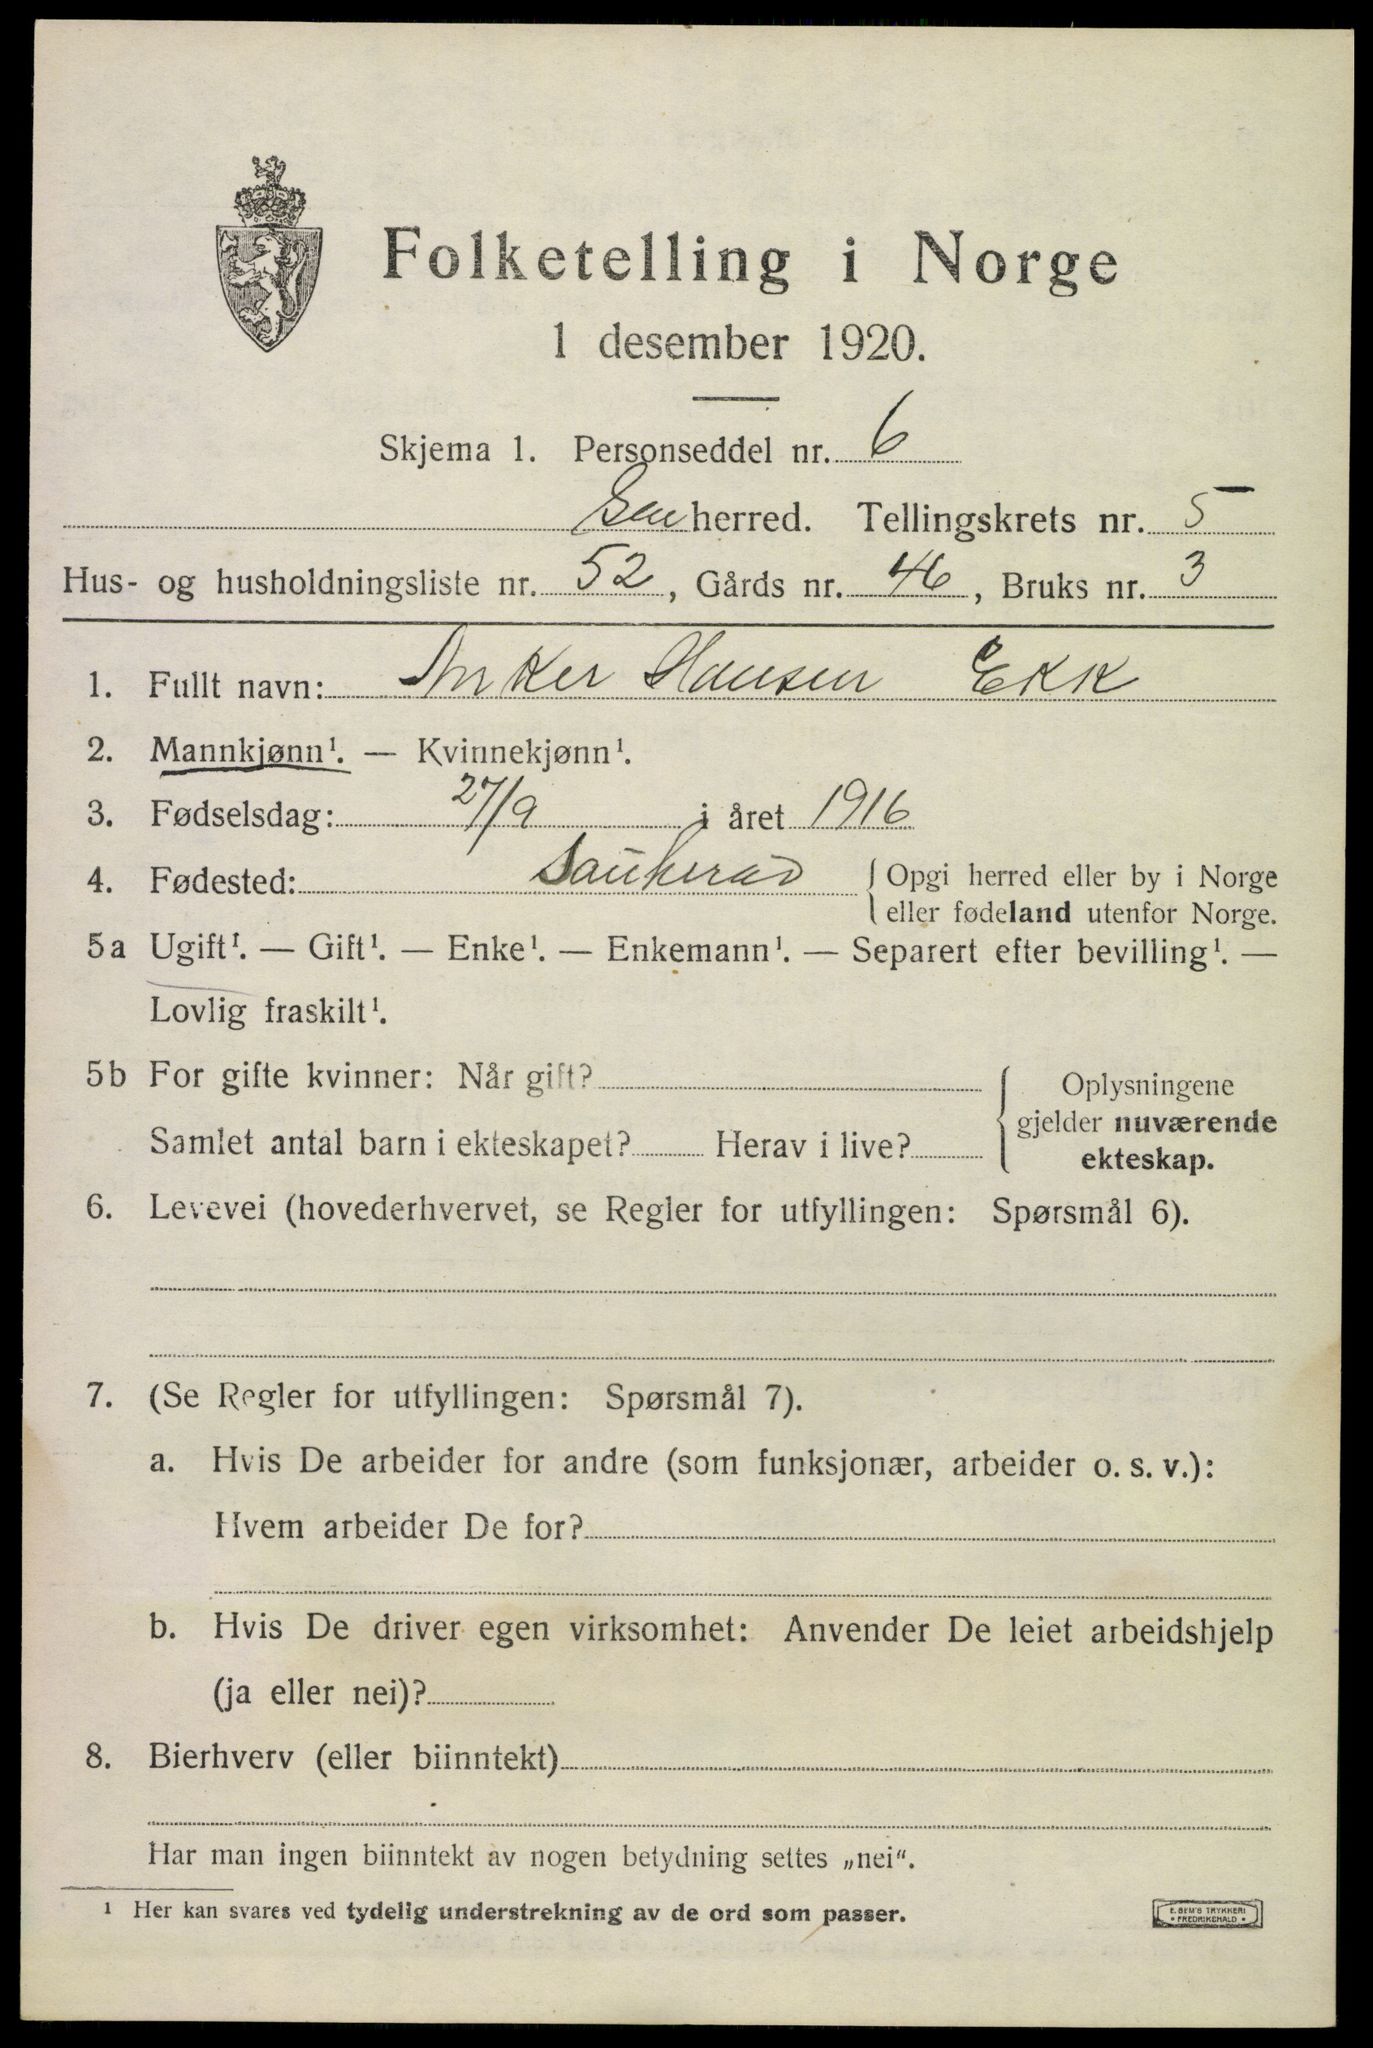 Folketelling i Norge
1 desember 1920.
Skjema 1. Personseddel nr. 6
herred. Tellingskrets nr. 5
Hus- og husholdningsliste nr. 52, Gårds nr. 46, Bruks nr. 3
1. Fullt navn: Anker Hansen Ekk
2. Mannkjønn¹. — Kvinnekjønn¹.
3. Fødselsdag: 27/9 i året 1916
4. Fødested: Sauherad { Opgi herred eller by i Norge
eller fødeland utenfor Norge.
5a Ugift¹. — Gift¹. — Enke¹. — Enkemann¹. — Separert efter bevilling¹. —
Lovlig fraskilt¹.
5b For gifte kvinner: Når gift?
Samlet antal barn i ekteskapet? Herav i live?
{ Oplysningene
gjelder nuværende
ekteskap.
6. Levevei (hovederhvervet, se Regler for utfyllingen: Spørsmål 6).
7. (Se Regler for utfyllingen: Spørsmål 7).
a. Hvis De arbeider for andre (som funksjonær, arbeider o. s. v.):
Hvem arbeider De for?
b. Hvis De driver egen virksomhet: Anvender De leiet arbeidshjelp
(ja eller nei)?
8. Bierhverv (eller biinntekt)
Har man ingen biinntekt av nogen betydning settes „nei“.
¹ Her kan svares ved tydelig understrekning av de ord som passer.
E. SEM'S TRYKKERI
• FREDRIKSHALD •